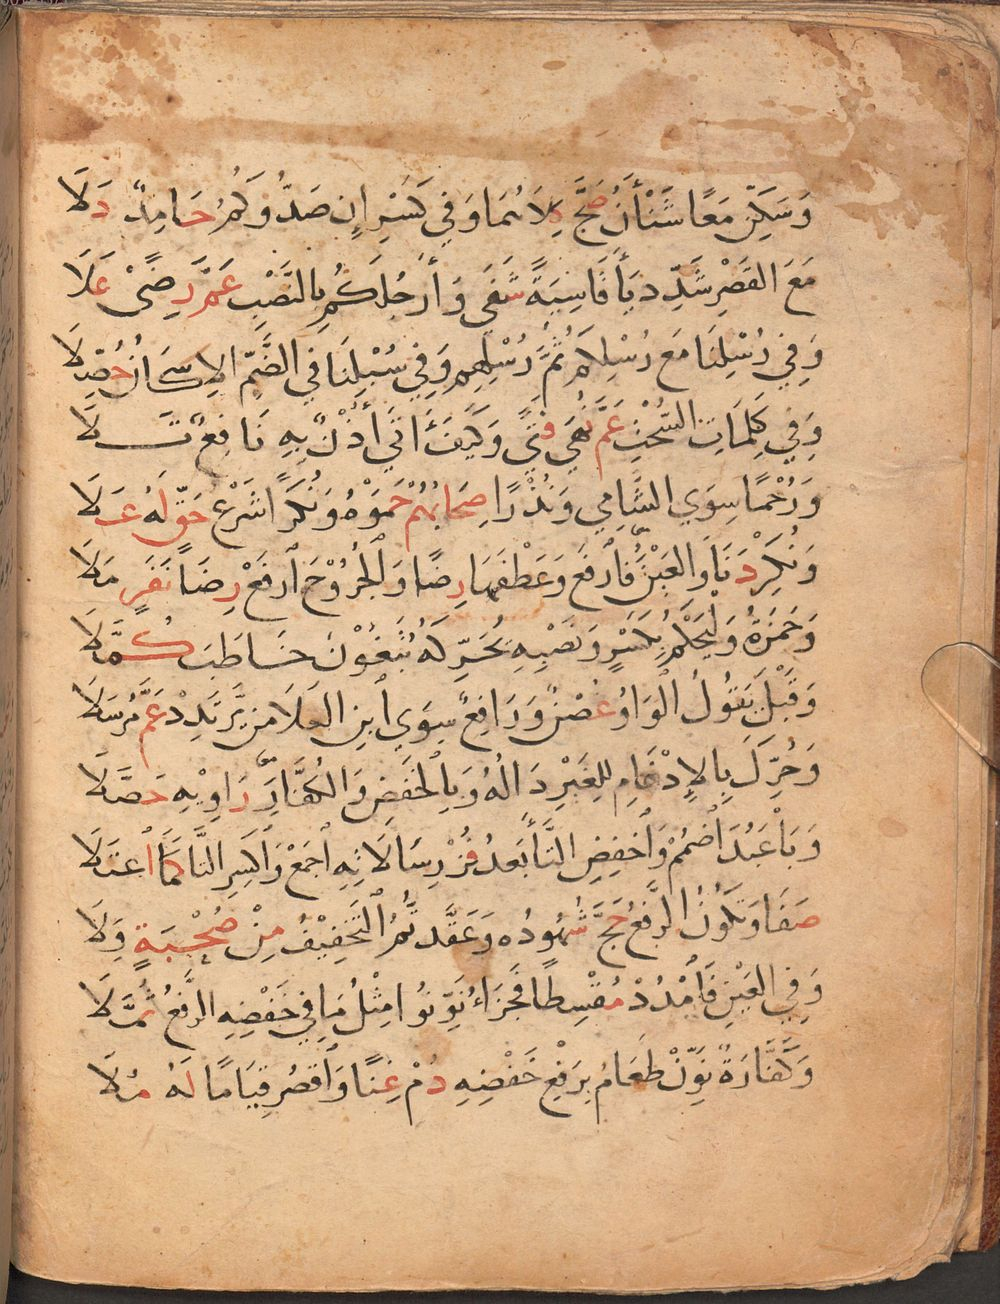 وَسَكِّنْ مَعًا شَنْآنُ صَحَّ كِلَاهُمَا وَفِي كَسْرِ إِن صَدُّوكُمُ حَامِدٌ دَلَا
مَعَ القَصْرِ شَدِّد يَاءَ قَاسِيَةً شَفَى وَأَرْجُلَكُمْ بِالنَّصْبِ عَمَّ رِضًى عَلَا
وَفِي رُسْلِنَا مَع رُسْلِكُمْ ثُمَّ رُسْلِهِم وَفِي سُبْلِنَا فِي الضَّمِّ الإِسكَانُ حُصِّلَا
وَفِي كَلِمَاتِ السُّحْتِ عَمَّ نُهَى فَتًى وَكَيْفَ أَتَى أُذْنٌ بِهِ نَافِعٌ تَلَا
وَرُحْمًا سِوَى الشَّامِي وَنُذْرًا صِحَابُهُمْ حَمَوْهُ وَنُكْرًا شَرْعُ حَقٍّ لَهُ عَلَا
وَنُكْرٍ دَنَا وَالعَيْنُ فَارْفَع وَعَطْفَهَا رِضًا وَالْجُرُوْحَ ارْفَعْ رِضَا نَفَرٍ مَلَا
وَحَمْزَةُ وَلْيَحْكُمْ بِكَسْرٍ وَنَصْبِهِ يُحَرِّكُهُ تَبْغُوْنَ خَاطَبَ كُمَّلَا
وَقَبْلَ يَقُولُ الْوَاوُ غُصْنٌ وَرَافِعٌ سِوَى ابْنِ العَلَا مَن يَرْتَدِدْ عَمَّ مُرْسَلَا
وَحُرِّكَ بِالإِدْغَامِ لِلغَيْرِ دَالُهُ وَبِالْخَفْضِ وَالكُفَّارَ رَاوِيْهِ حَصَّلَا
وَبَا عَبُدَ اضْمُمْ وَاخْفِضِ التَّا بَعدُ فُزْ رِسَالَاتِهِ اجْمَعْ وَاكْسِرِ التَّا كَمَا اعتَلَا
صَفَا وَتَكُونُ الرَّفْعُ حَجَّ شُهُودُه وَعَقَّدتُّمُ التَّخْفِيْفُ مِنْ صُحْبَةٍ وَلَا
وَفِي العَيْنِ فَامْدُدْ مُقْسِطًا فَجَزَاءُ نَوِّنُوا مِثْلُ مَا فِي خَفْضِهِ الرَّفْعُ ثُمَّلَا
وَكَفَّارَةٌ نَوِّنْ طَعَامُ بِرَفْعِ خَفْضِهِ دُمْ غِنًا وَاقْصُرْ قِيَامًا لَهُ مُلَا